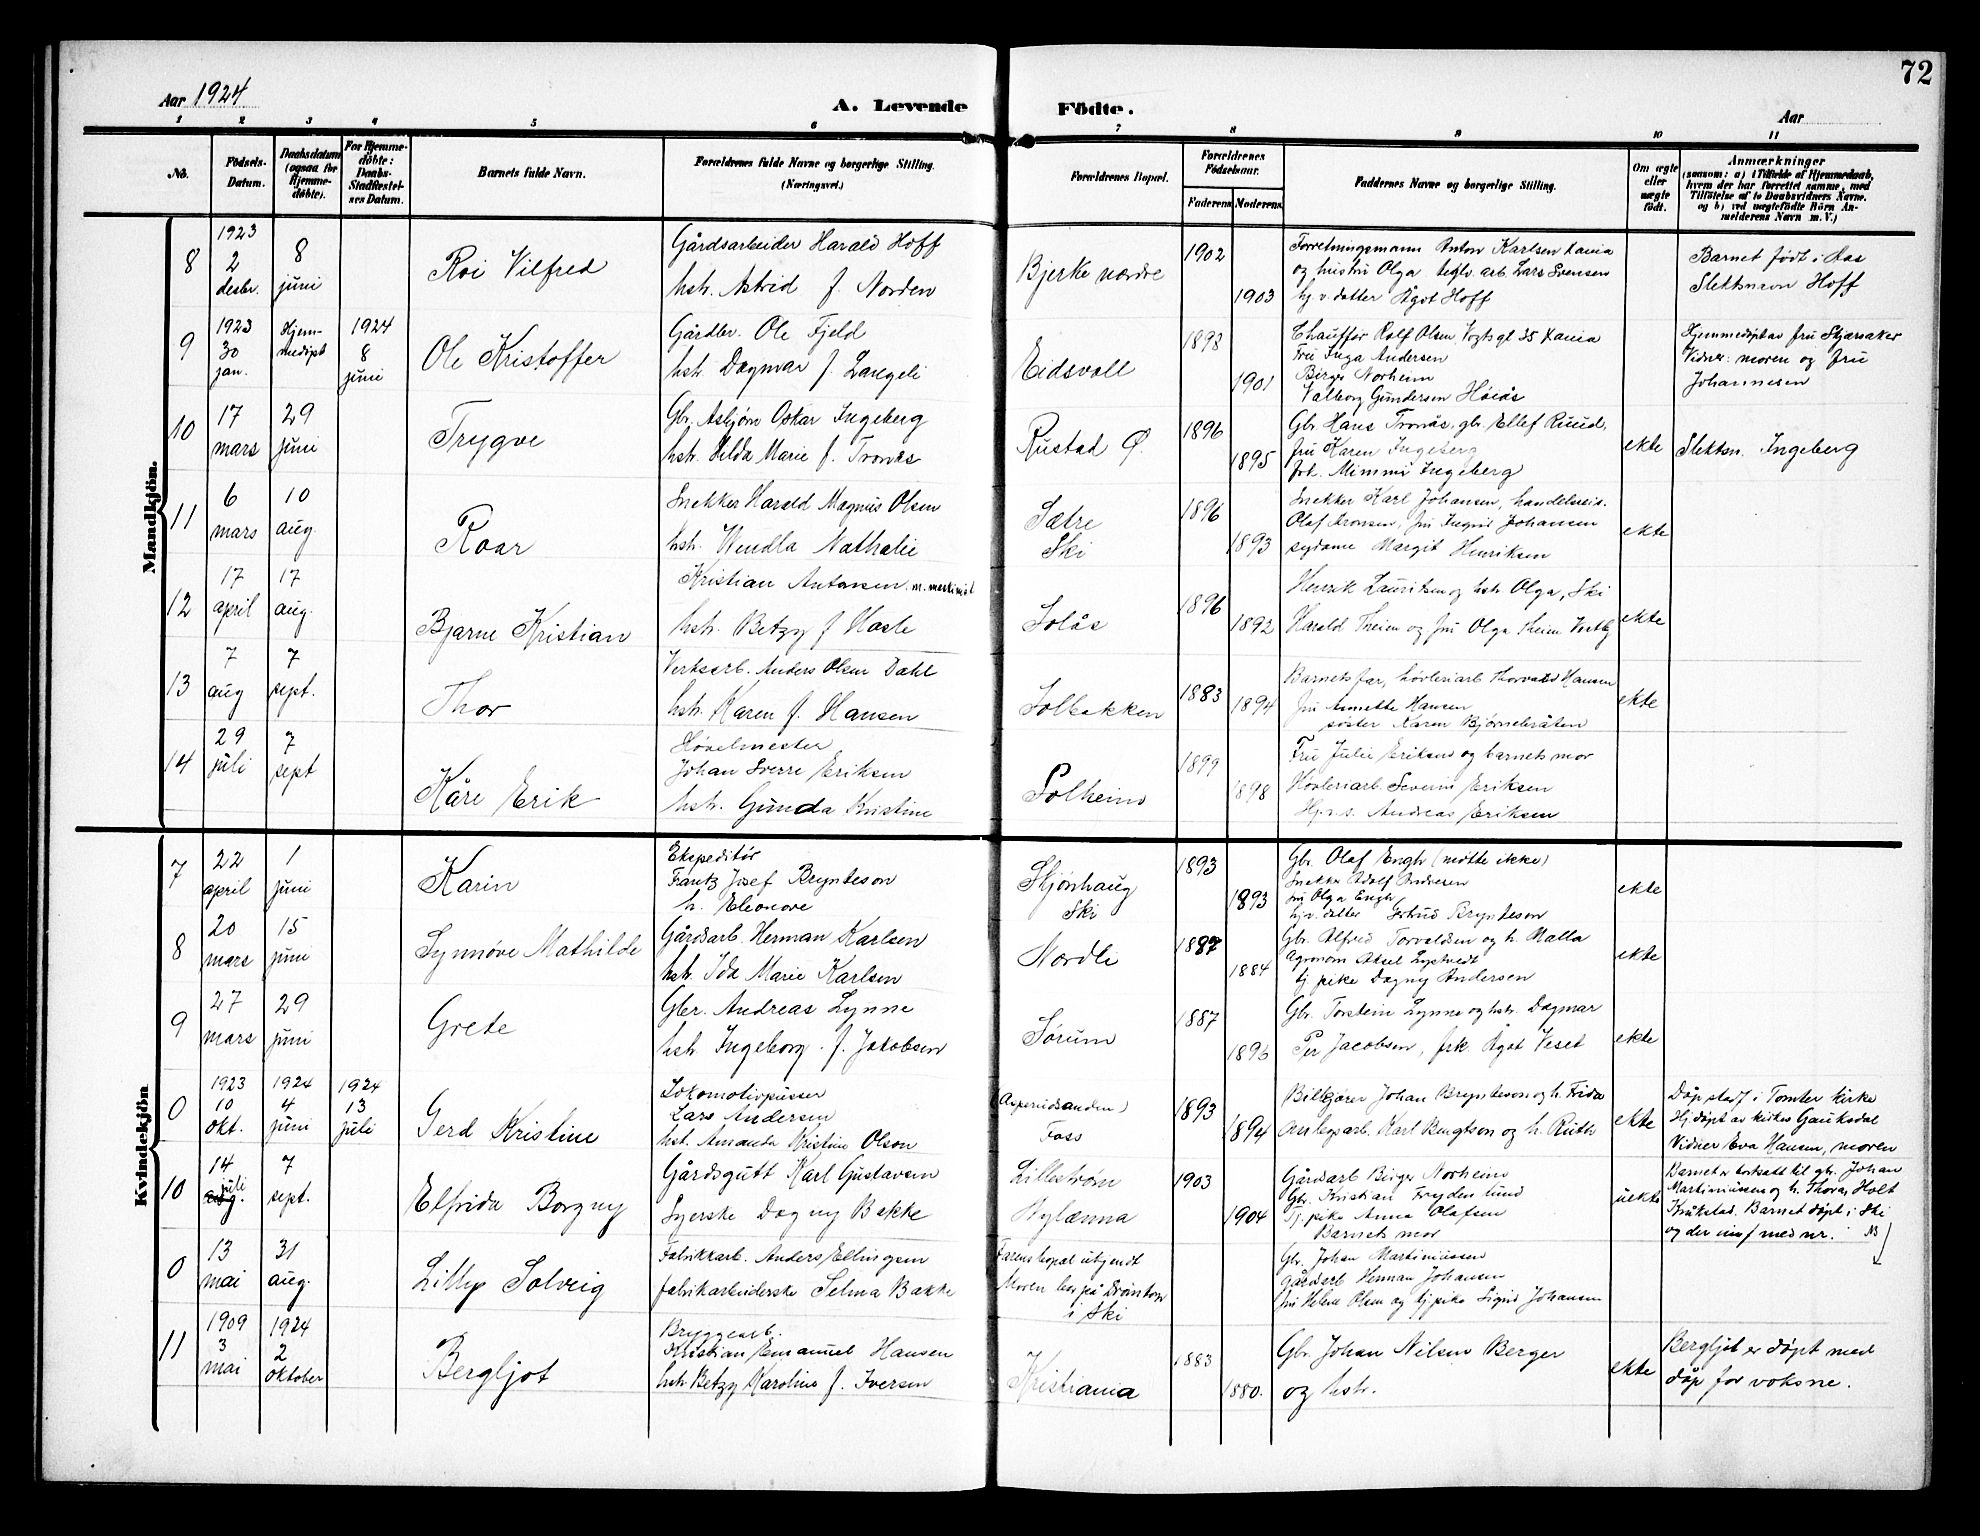 72
Aar 1924
A. Levende
Födte.
Aar
1 2 3 4 5 6 7 8 9 10 11
No.
Födsels-
Datum.
Daabsdatum
(ogsaa for
Hjemme-
döbte).
For Hjemme-
döbte:
Daabs-
Stadfæstel-
ses Datum.
Barnets fulde Navn.
Forældrenes fulde Navne og borgerlige Stilling.
(Næringsvei.)
Forældrenes Bopæl.
Forældrenes
Födselsaar.
Faderens
Moderens
Faddernes Navne og borgerlige Stilling.
Om ægte
eller
uægte
født.
Anmærkninger
(saasom: a) i Tilfælde af Hjemmedaab,
hvem der har forrettet samme, med
Tilföielse af to Daabsvidners Navne,
og b) ved uægtefödte Börn An-
melderens Navn m. V.)
Mandkjön.
8
1923
2
desbr.
8
juni
Roi Vilfred
Gårdsarbeider Harald Hoff
hstr. Astrid f. Norden
Bjerke nordre
1902
1903
Forretningsmann Anton Karlsen
og hustru Olga teglv. arb. Lars Svensen
hj.v. datter Ågot Hoff
Barnet født i Aas
Slektsnavn Hoff
9
1923
30
jan.
Hjem-
medøpt
1924
8
juni
Ole Kristoffer
Gårdbr. Ole Fjeld
hstr. Dagmar f. Langeli
Eidsvoll
1898
1901
Chauffør Rolf Olsen Vogtsgt 35
Fru Inga Andersen
Birger Norheim
Valborg Gundersen Høiås
Hjemmedøpt av fru Skjærsaker
Vidner: moren og fru
Johannesen
10
17
mars
29
juni
Trygve
Gbr. Asbjørn Oskar Ingeberg
hstr. Hilda Marie f. Tronås
Rustad Ø.
1896
1895
Gbr. Hans Tronås, gbr. Ellef Ruud,
fru Karen Ingeberg
frk. Mimmi Ingeberg
ekte
Slektsn. Ingeberg
11
6
mars
10
aug.
Roar
Snekker Harald Magnus Olsen
hstr. Wendla Nathalie
Sætre
Ski
1896
1893
Snekker Karl Johansen, handelsreis.
Olaf Aronsen, fru Ingrid Johansen
sydame Margit Henriksen
ekte
12
17
april
17
aug.
Bjarne Kristian
Kristian Antonsen
hstr. Betzy f Hasle
Solås
1896
1892
Henrik Lauritsen og hstr Olga, Ski
Harald Treim og fru Olga Treim
ekte
13
7
aug
7
sept.
Thor
Verksarb. Anders Olsen Dahl
hstr. Karen f. Hansen
Solbakken
1883
1894
Barnets far, høvleriarb Thorvald Hansen
fru Annette Hansen
søster Karen Bjørnebråten
ekte
14
29
juli
7
sept
Kåre Erik
Høvelmester
Johan Sverre Eriksen
hstr. Gunda Kristine
Solheim
1899
1898
Fru Julie Eriksen og barnets mor
Høvleriarb. Severin Eriksen
Hj.v.s. Andreas Eriksen
Kvindekjön
7
22
april
1
juni
Karin
Ekspeditør
Frantz Josef Brynteson
h. Eleonore
Skjønhaug
Ski
1893
1893
Gbr. Olaf Engh (møtte ikke)
Snekker Adolf Andresen
fru Olga Engh
hj.v. datter Gertrud Brynteson
ekte
8
20
mars
15
juni
Synnøve Mathilde
Gårdsarb. Herman Karlsen
hstr. Ida Marie Karlsen
Nordli
1887
1884
Gbr. Alfred Torvaldsen og h. Malla
Agronom Aksel Lystvedt
tj. pike Dagny Andersen
ekte
9
27
mars
29
juni
Grete
Gbr. Andreas Lynne
hstr. Ingeborg. f. Jakobsen
Sørum
1887
Gbr. Torstein Lynne og hstr. Dagmar
Per Jacobsen, frk. Ågot Veset
ekte
0
1923
10
okt.
1924
4
juni
1924
13
juli
Gerd Kristine
Lokomotivpusser
Lars Andersen
hst. Amanda Kristine Olson
Foss
1893
1894
Bilkjører Johan Brynteson og h. Frida
Karl Bengtson og h. Ruth
ekte
Dåp stadf. i Tomter kirke
Hj. døpt av kirkes. Gauksdal
Vidner Eva Hansen, moren
10
14
juli
aug.
7
sept.
Elfrida Borgny
Gårdsgutt Karl Gustavsen
Syerske Dagny Bakke
Lillestrøm
Nylænna
1903
1904
Gårdarb Birger Norheim
Gbr. Kristian Frydenlund
Tj. pike Anna Olafsen
Barnets mor
uekte
Barnet er bortsatt til gbr. Johan
Martiniussen og h. Thora Holt
Kråkstad. Barnet døpt i Ski
og der innf med nr.
0
13
mai
31
aug.
Lilly Solveig
Fabrikkarb. Anders Ellingsen
fabrikarbeiderske Selma Bakke
Farens bopal ubekjendt
Moren bor på Drømtorp
i Ski
Gbr. Johan Martiniussen
Gårdarb Herman Johansen
fru Helene Olsen og tj.pike Sigrid Johansen
11
1909
3
mai
1924
2
oktober
Bergljot
Bryggearb.
Kristian Emanuel Hansen
hstr. Betzy Karoline f. Iversen
Kristiania
1883
1880.
Gbr. Johan Nilsen Berger
og hstr.
ekte
Bergljot er døpt med
dåp for voksne.